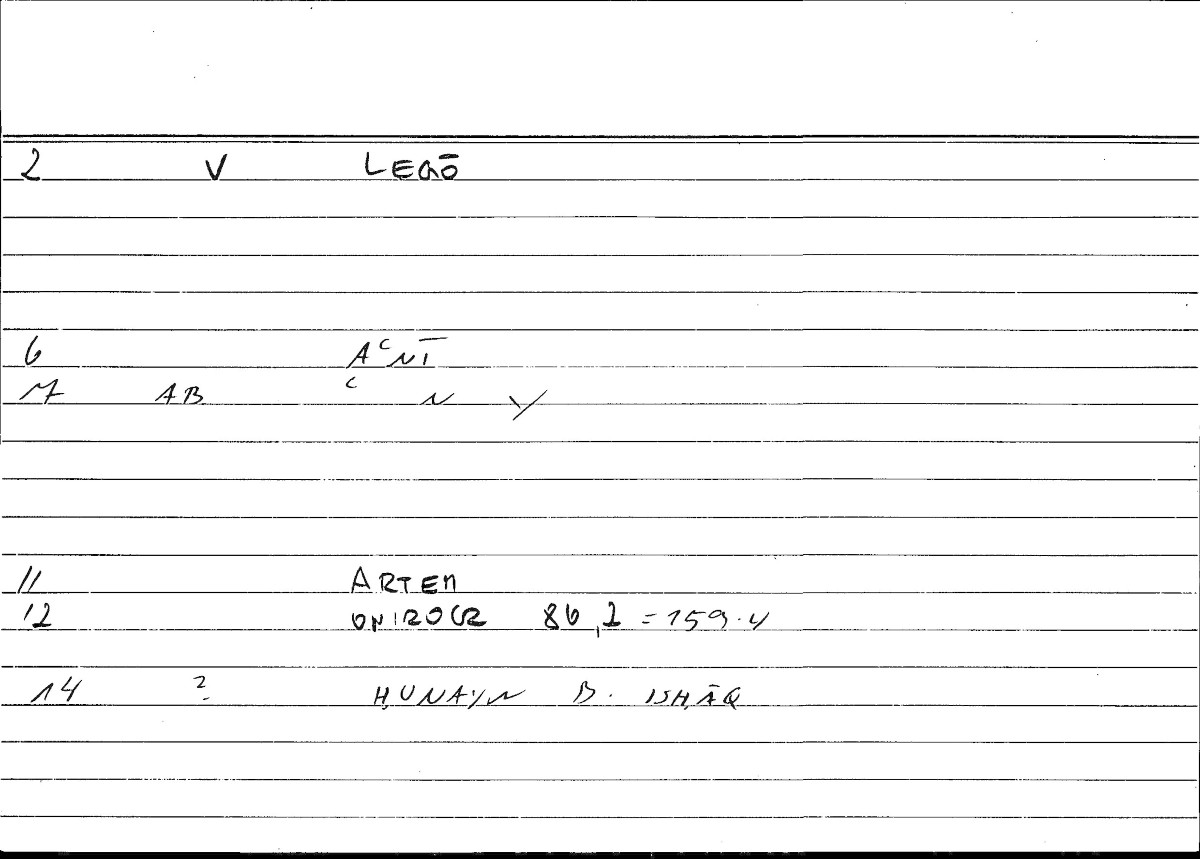 2 V LEGŌ
6 AʿNĪ
17 AB ʿ N Y
11 ARTEM
12 ONIROCR 86,2 = 159.4
14 ? ḤUNAYN B. ISḤĀQ